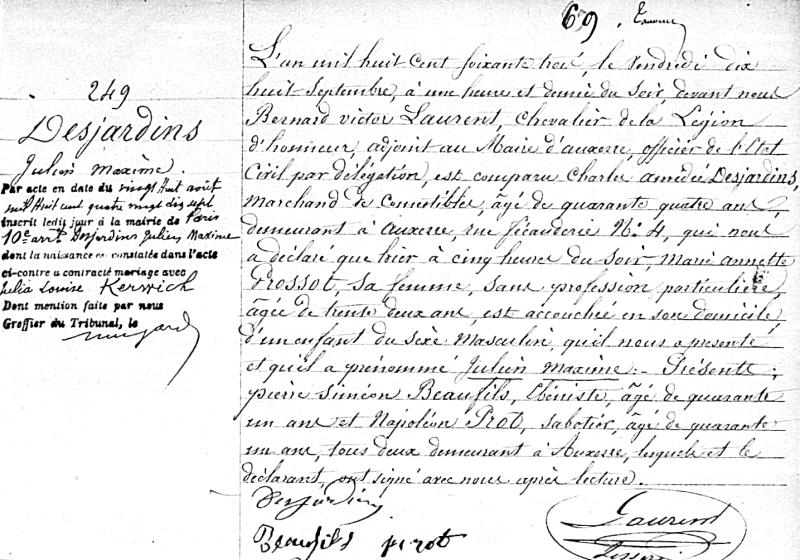 69.
249
Desjardins
Julien Maxime.
Par acte en date du vingt huit août
mil huit cent quatre vingt dix sept
inscrit ledit jour à la mairie de Paris
10e arrt Desjardins Julien Maxime
dont la naissance est constatée dans l'acte
ci-contre a contracté mariage avec
Julia Louise Kerwich
Dont mention faite par nous
Greffier du Tribunal, le
L'an mil huit cent soixante trois, le vendredi dix
huit septembre, à une heure et demie du soir, devant nous
Bernard victor Laurent, chevalier de la Légion
d'honneur, adjoint au Maire d'auxerre, officier de l'Etat
Civil par délégation, est comparu Charles amédée Desjardins,
Marchand de Comestibles, âgé de quarante quatre ans,
demeurant à Auxerre, rue ficauderie No. 4, qui nous
a déclaré que hier à cinq heures du soir, Marie annette
Prossot, sa femme, sans profession particulière,
âgée de trente deux ans, est accouchée en son domicile,
d'un enfant du sexe Masculin, qu'il nous a présenté
et qu'il a prénommé Julien Maxime. Présents:
pierre Siméon Beaufils, Ebéniste, âgé de quarante
un ans et Napoléon Prot, sabotier, âgé de quarante
un ans, tous deux demeurant à Auxerre, lesquels et le
déclarant, ont signé avec nous après lecture.
Desjardins
Beaufils prot
Laurent